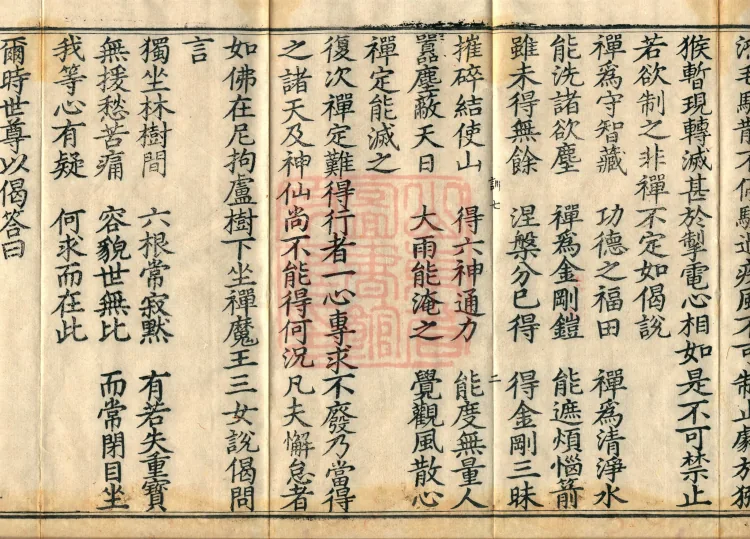 猴暫現轉滅甚於掣電心相如是不可禁止
若欲制之非禪不定如偈說
禪為守智藏 功德之福田 禪為清淨水
能洗諸欲塵 禪為金剛鎧 能遮煩惱箭
雖未得無餘 涅槃分已得 得金剛三昧
訓七 二
摧碎結使山 得六神通力 能度無量人
囂塵蔽天日 大雨能淹之 覺觀風散心
禪定能滅之
復次禪定難得行者一心專求不廢乃當得
之諸天及神仙尚不能得何況凡夫懈怠者
如佛在尼拘盧樹下坐禪魔王三女說偈問
言
獨坐林樹間 六根常寂默 有若失重寶
無援愁苦痛 容貌世無比 而常閉目坐
我等心有疑 何求而在此
爾時世尊以偈答曰